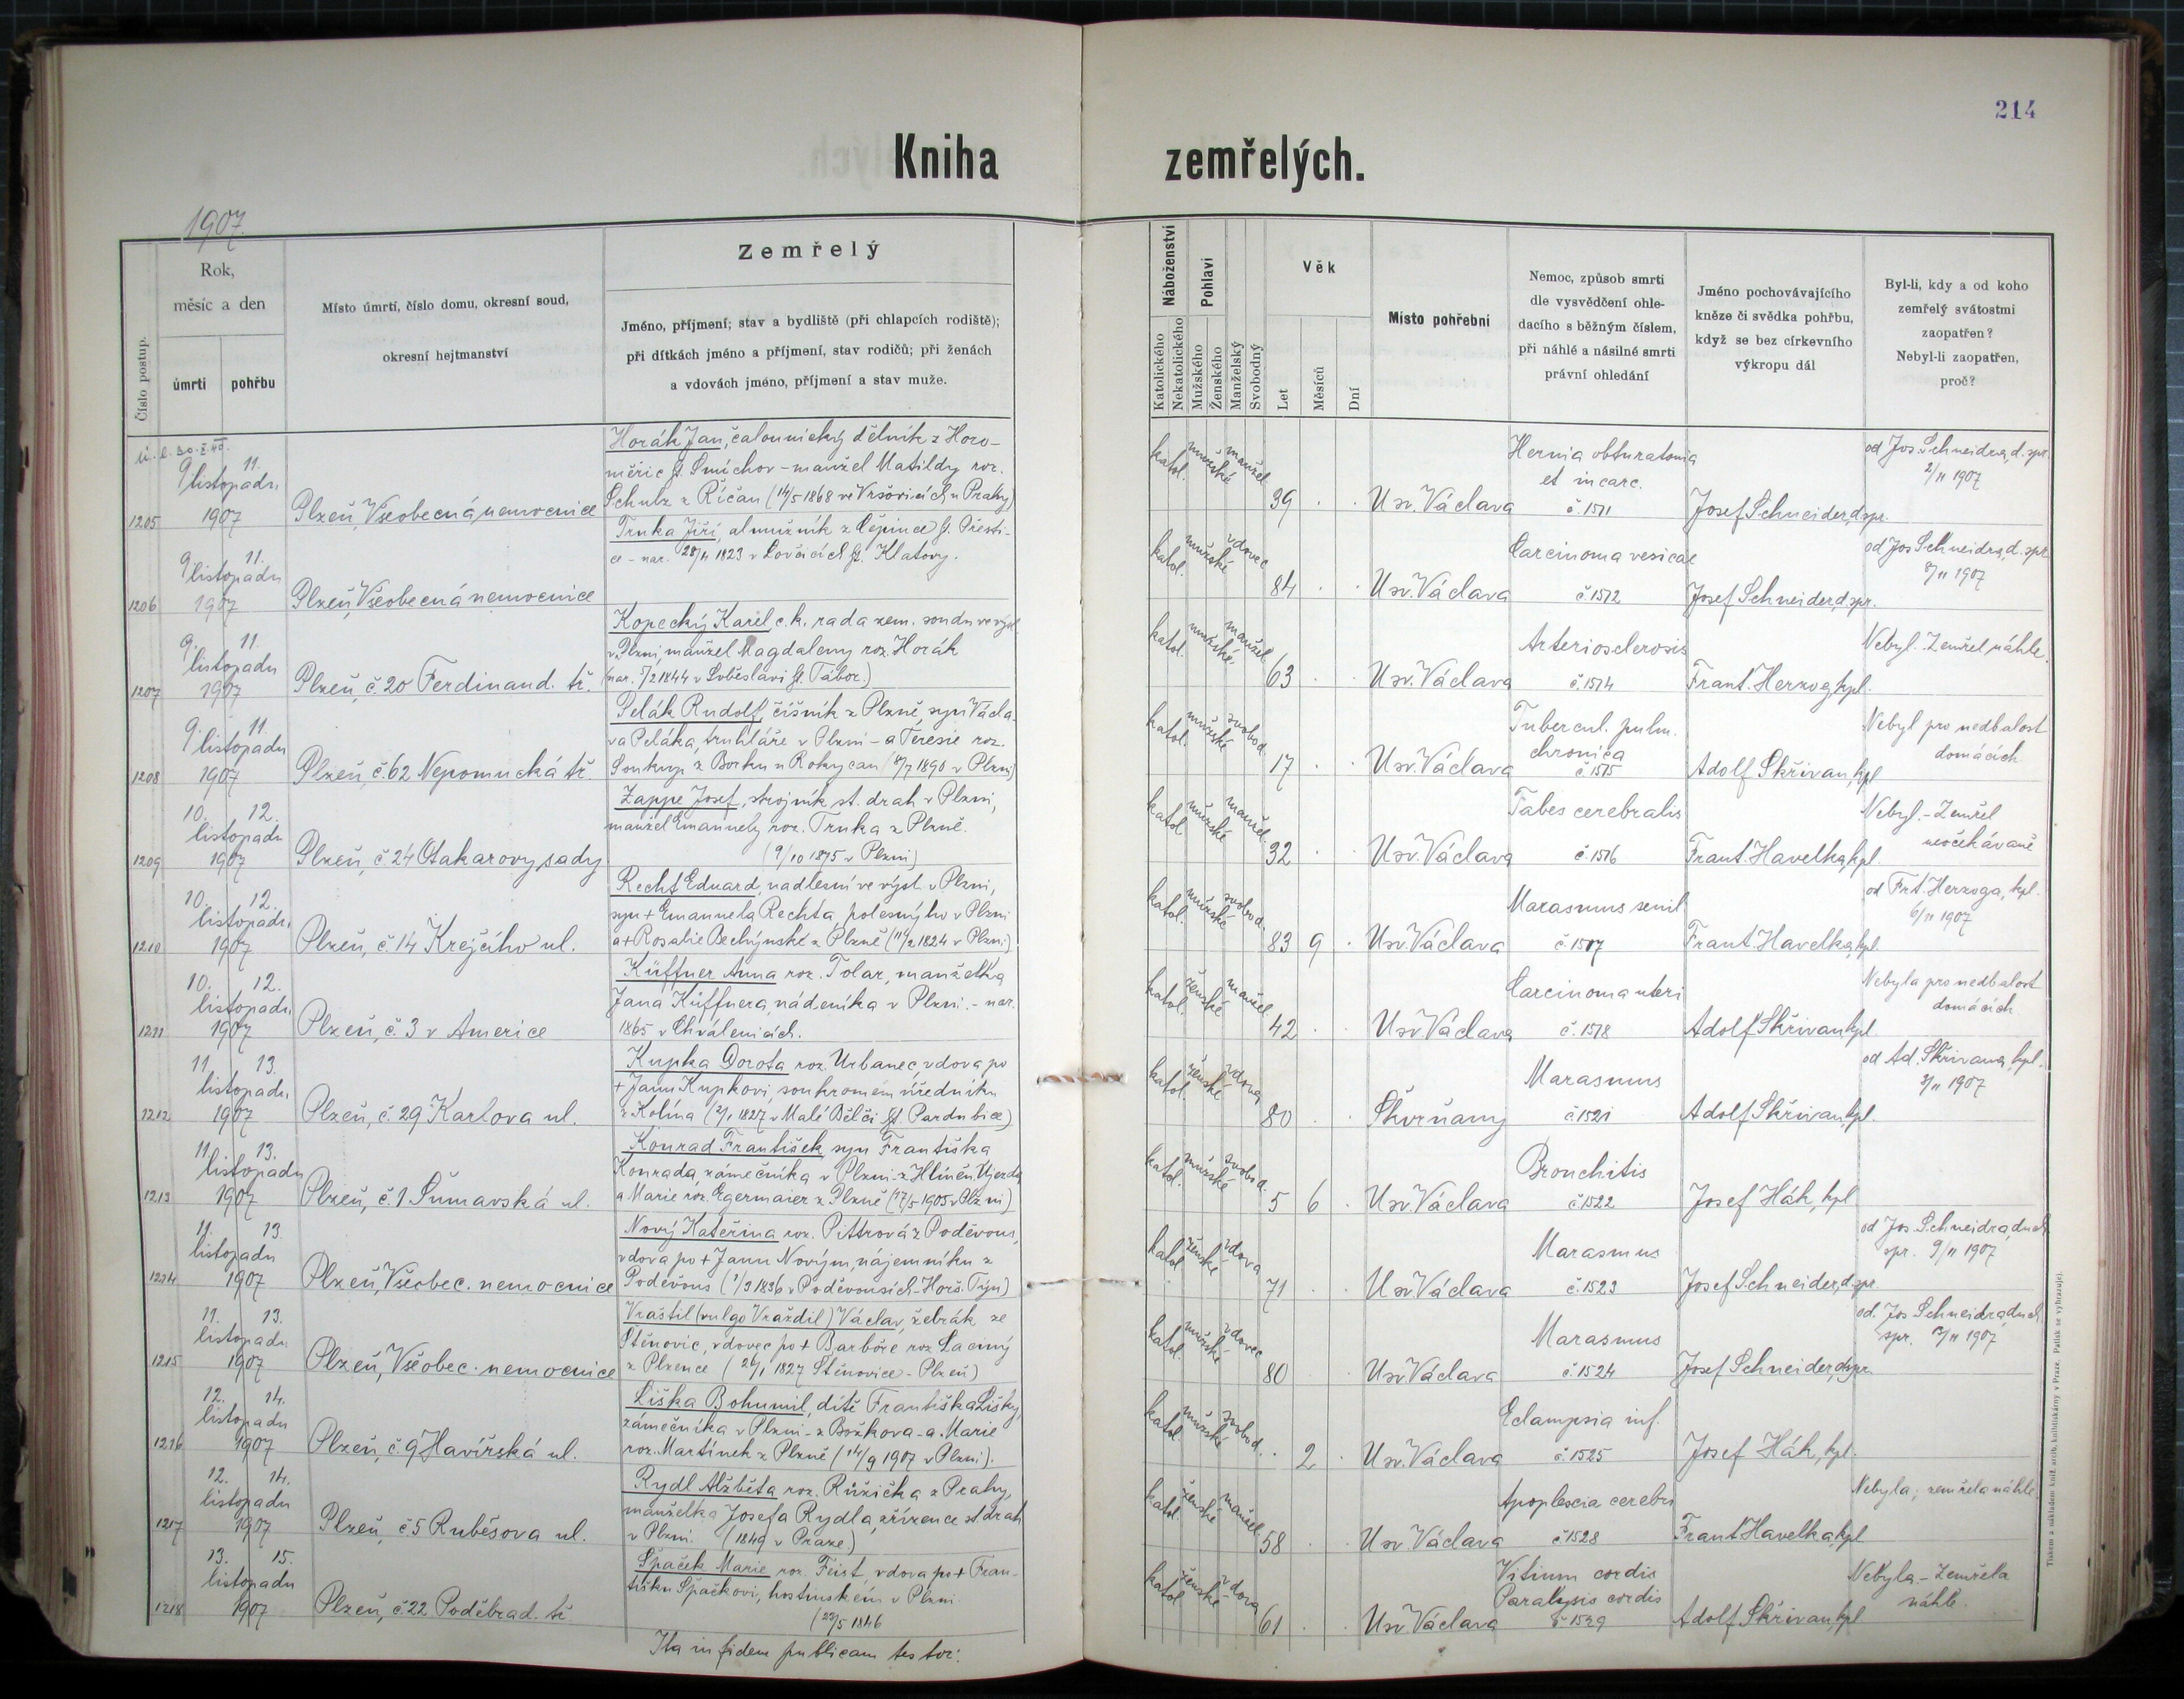 214
Kniha zemřelých.
1907.
Číslo postup.
Rok,
měsíc a den
úmrtí
pohřbu
Místo úmrtí, číslo domu, okresní soud,
okresní hejtmanství
Zemřelý
Jméno, příjmení; stav a bydliště (při chlapcích rodiště);
při dítkách jméno a příjmení, stav rodičů; při ženách
a vdovách jméno, příjmení a stav muže.
Náboženství
Katolického
Nekatolického
Pohlaví
Mužského
Ženského
Manželský
Svobodný
Věk
Let
Měsíců
Dní
Místo pohřební
Nemoc, způsob smrti
dle vysvědčení ohle-
dacího s běžným číslem,
při náhlé a násilné smrti
právní ohledání
Jméno pochovávajícího
kněze či svědka pohřbu,
když se bez církevního
výkropu dál
Byl-li, kdy a od koho
zemřelý svátostmi
zaopatřen?
Nebyl-li zaopatřen,
proč?
1205
9 11.
listopadu
1907
Plzeň, Všeobecná nemocnice
Horák Jan, čalounický dělník z Horo-
měřic ht. Smíchov - manžel Matildy roz.
Schulz z Říčan (14/5 1868 ve Vršovicích u Prahy)
katol. mužské manžel 39
U sv. Václava
Hernia obturatoria
et incarc.
č. 1511
Josef Schneider, d. spr.
od Jos. Schneidra, d. spr.
2/11 1907
1206
9 11.
listopadu
1907
Plzeň, Všeobecná nemocnice
Trnka Jiří, almužník z Čepince ht. Přešti-
ce - nar. 28/11 1823 v Lovčicích ht. Klatovy.
katol. mužské vdovec 84
U sv. Václava
Carcinoma vesicae
č. 1512
Josef Schneider, d. spr.
od Jos. Schneidra, d. spr.
8/11 1907
1207
9. 11.
listopadu
1907
Plzeň, č. 20 Ferdinand. tř.
Kopecký Karel, c. k. rada zem. soudu ve výsl.
v Plzni, manžel Magdaleny roz. Horák
(nar. 5/2 1844 v Soběslavi ht. Tábor.)
katol. mužské manžel 63
U sv. Václava
Arteriosclerosis
č. 1514
Frant. Herzog, kpl.
Nebyl. Zemřel náhle.
1208
9. 11.
listopadu
1907
Plzeň, č. 62 Nepomucká tř.
Pelák Rudolf, číšník z Plzně, syn Václa-
va Peláka, truhláře v Plzni - a Teresie roz.
Soukup z Borku u Rokycan (/7 1890 v Plzni)
katol. mužské svobod. 17
U sv. Václava
Tubercul. pulm.
chronica
č. 1515
Adolf Skřivan, kpl
Nebyl pro nedbalost
domácích
1209
10. 12.
listopadu
1907
Plzeň, č. 24 Otakarovy sady
Zappe Josef, strojník st. drah v Plzni,
manžel Emanuely roz. Trnka z Plzně.
(9/10 1875 v Plzni)
katol. mužské manžel. 32
U sv. Václava
Tabes cerebralis
č. 1516
Frant. Havelka, kpl.
Nebyl. - Zemřel
neočekávaně
1210
10. 12.
listopadu
1907
Plzeň, č. 14 Krejčího ul.
Recht Eduard, nadlesní ve výsl. v Plzni,
syn + Emanuela Rechta, polesného v Plzni
a + Rosalie Bechyňské z Plzně (11/2 1824 v Plzni)
katol. mužské svobod. 83 9
U sv. Václava
Marasmus senil.
č. 1517
Frant. Havelka, kpl.
od Frt. Herzoga, kpl.
6/11 1907
1211
10. 12.
listopadu
1907
Plzeň, č. 3 v Americe
Küffner Anna roz. Tolar, manželka
Jana Küffnera, nádeníka v Plzni. - nar.
1865 v Chválenicích.
katol. ženské manžel. 42
U sv. Václava
Carcinoma uteri
č. 1518
Adolf Skřivan, kpl
Nebyla pro nedbalost
domácích
1212
11. 13.
listopadu
1907
Plzeň, č. 29 Karlova ul.
Kupka Dorota roz. Urbanec, vdova po
+ Janu Kupkovi, soukromém úředníku
z Kolína (2/1 1827 v Malé Bělči ht. Pardubice)
katol. ženské vdova 80
Škvrňany
Marasmus
č. 1521
Adolf Skřivan, kpl.
od Ad. Skřivana, kpl.
3/11 1907
1213
11. 13.
listopadu
1907
Plzeň, č. 1 Šumavská ul.
Konrad František, syn Františka
Konrada, zámečníka v Plzni - z Hliněn. Újezda
a Marie roz. Egermaier z Plzně (17/5 1905 v Plzni)
katol. mužské svobod. 5 6
U sv. Václava
Bronchitis
č. 1522
Josef Hák, kpl
1214
11. 13.
listopadu
1907
Plzeň, Všeobec. nemocnice
Nový Kateřina roz. Pittrová z Poděvous,
vdova po + Janu Novým, nájemníku z
Poděvous (1/3 1836 v Poděvousích - Horš. Týn)
katol. ženské vdova 71
U sv. Václava
Marasmus
č. 1523
Josef Schneider, d. spr.
od Jos. Schneidra, duch.
spr. 9/11 1907
1215
11. 13.
listopadu
1907
Plzeň, Všeobec. nemocnice
Vraštil (vulgo Vraždil) Václav, žebrák ze
Štěnovic, vdovec po + Barboře roz. Laciný
z Plzence (26/1 1827 Štěnovice - Plzeň)
katol. mužské vdovec 80
U sv. Václava
Marasmus
č. 1524
Josef Schneider, d. spr.
od. Jos Schneidra, duch.
spr. /11 1907
1216
12. 14.
listopadu
1907
Plzeň, č. 9 Havířská ul.
Liška Bohumil, dítě Františka Lišky,
zámečníka v Plzni - z Božkova - a Marie
roz. Martínek z Plzně (14/9 1907 v Plzni).
katol. mužské svobod. 2
U sv. Václava
Eclampsia inf.
č. 1525
Josef Hák, kpl.
1217
12. 14.
listopadu
1907
Plzeň, č 5 Rubešova ul.
Rydl Alžběta roz. Růžička z Prahy,
manželka Josefa Rydla, zřízence st. drah
v Plzni. (1849 v Praze)
katol. ženské manžel. 58
U sv. Václava
Apoplexia cerebri
č. 1528
Frant Havelka, kpl
Nebyla; zemřela náhle.
1218
13. 15.
listopadu
1907
Plzeň, č. 22 Poděbrad. tř.
Špaček Marie roz. Feist, vdova po + Fran-
tišku Špačkovi, hostinském v Plzni
(22/5 1846
katol. ženské vdova 61
U sv. Václava
Vitium cordis
Paralysis cordis
č. 1529
Adolf Skřivan, kpl
Nebyla - Zemřela
náhle.
Ita in fidem publicam testor:
Tiskem a nákladem kníž. arcib. knihtiskárny v Praze. Patisk se vyhrazuje.